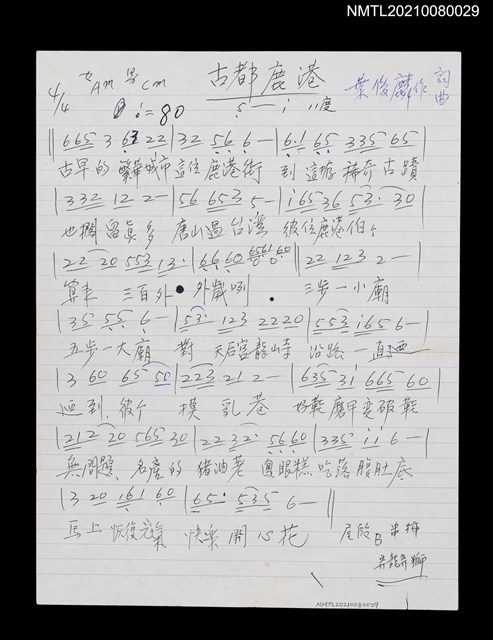 NMTL20210080029
古都鹿港
4/4 女Am 男Cm
葉俊麟作 詞曲
=80
5-i 11度
665 3 63 22 | 32 56 6- | 61 65 335 65 |
古早的繁華城市這位鹿港街 到這妝稀奇古蹟
332 12 2- | 56 653 5- | i65 36 53· 30 |
也擱留真多 唐山過台灣 彼位鹿港伯个
22 20 553 13· | 66 60 6561 60 | 22 123 2- |
算來 三百外 外歲咧 三步一小廟
35 55 6- | 53· 123 22 20 | 553 i65 6- |
五步一大廟 對 天后宮龍山寺 沿路一直
3 60 65 50 | 223 21 2- | 635 3i 665 60 |
到 彼个 摸乳巷 好鞋磨甲變破鞋
212 20 565 30 | 22 32· 56 60 | 335 ii 6- |
無問題 名產的 豬油荖 鳳眼糕吃落腹肚底
3 20 161 60 | 65· 535 6- ||
馬上恢復元氣 快樂開心花
尾段B
弄龍弄獅
NMTL20210080029